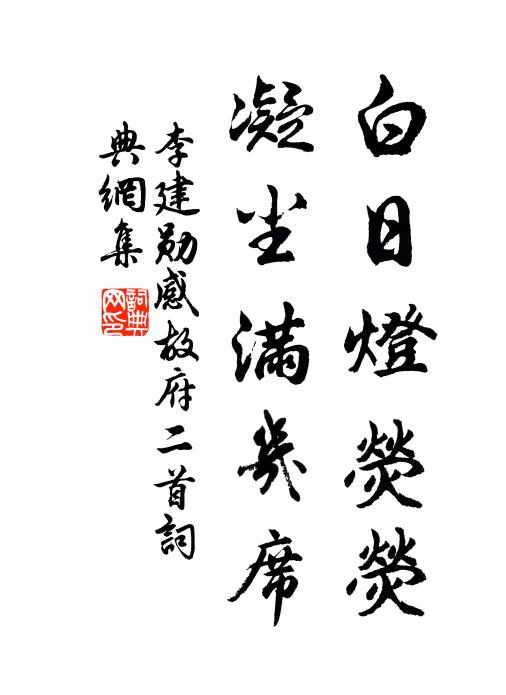 白日燈熒熒
凝尘滿幾席
李建勛感故府二首詞
典網集
詞典網印